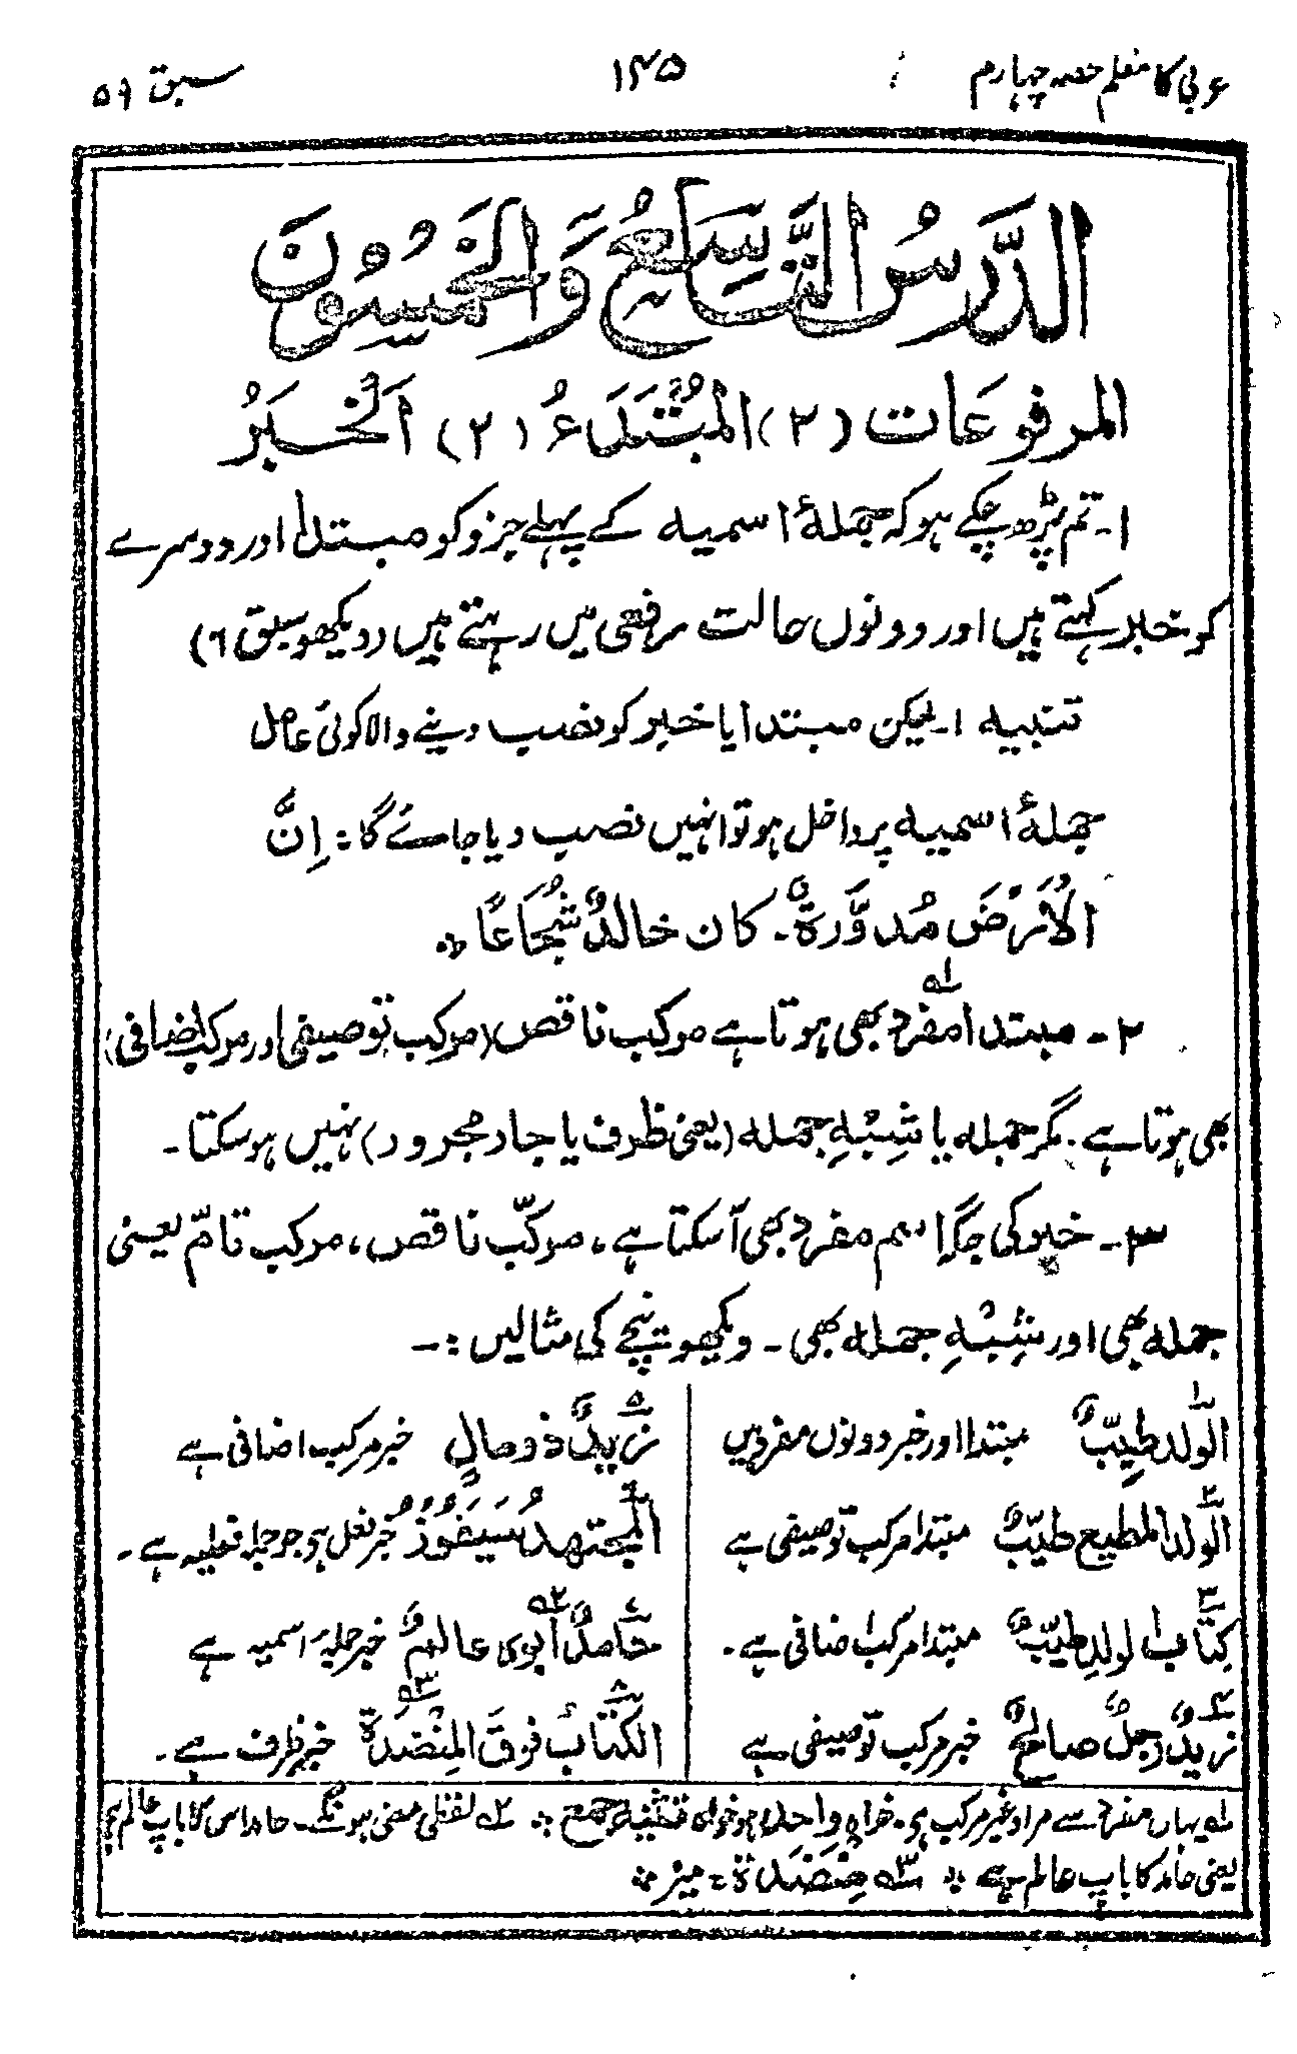 عربی کا معلم حصہ چہارم ۱۴۵ سبق ۵۹
الدَّرسُ التَّاسِعُ وَالخَمسُونَ
المرفوعات (۲) المُبْتَدَءُ (۲) اَلْخَبَرُ
۱۔ تم پڑھ چکے ہو کہ جملۂ اسمیہ کے پہلے جزو کو مبتدا اور دوسرے
کو خبر کہتے ہیں اور دونوں حالت رفعی میں رہتے ہیں (دیکھو سبق ۶)
تنبیہ ۱۔ لیکن مبتدا یا خبر کو نصب دینے والا کوئی عامل
جملۂ اسمیہ پر داخل ہو تو انہیں نصب دیا جائے گا: اِنَّ
الْاَرْضَ مُدَوَّرَةٌ۔ کان خالدٌ شُجَاعًا ۞
۲۔ مبتدا مفرد ۱؎ بھی ہوتا ہے مرکب ناقص (مرکب توصیفی اور مرکب اضافی)
بھی ہوتا ہے۔ مگر جملہ یا شِبْہِ جملہ (یعنی ظرف یا جار مجرور) نہیں ہو سکتا۔
۳۔ خبر کی جگہ اسم مفرد بھی آ سکتا ہے، مرکّب ناقص، مرکب تامّ یعنی
جملہ بھی اور شِبْہِ جملہ بھی۔ دیکھو نیچے کی مثالیں :۔
۱ الوَلد طیِّبٌ مبتدا اور خبر دونوں مفرد ہیں
۲ الوَلد المطیع طیّبٌ مبتدا مرکب توصیفی ہے
۳ کتاب الولدِ طیّبٌ مبتدا مرکب اضافی ہے۔
۴ زیدٌ رجلٌ صالحٌ خبر مرکب توصیفی ہے
۵ زیدٌ ذو مالٍ خبر مرکب اضافی ہے
۶ المجتهدُ سَيَفُوزُ خبر فعل ہے جو جملہ فعلیہ ہے۔
۷ حامدٌ ابوہ ۲؎ عالمٌ خبر جملۂ اسمیہ ہے
۸ الکتابُ فوقَ المِنْضَدَةِ ۳؎ خبر ظرف ہے۔
۱؎ یہاں مفرد سے مراد غیر مرکب ہے۔ خواہ واحد ہو خواہ تثنیہ و جمع ۞ ۲؎ لفظی معنی ہونگے۔ حامد اس کا باپ عالم ہے
یعنی حامد کا باپ عالم ہے ۞ ۳؎ مِنْضَدَة = میز ۞